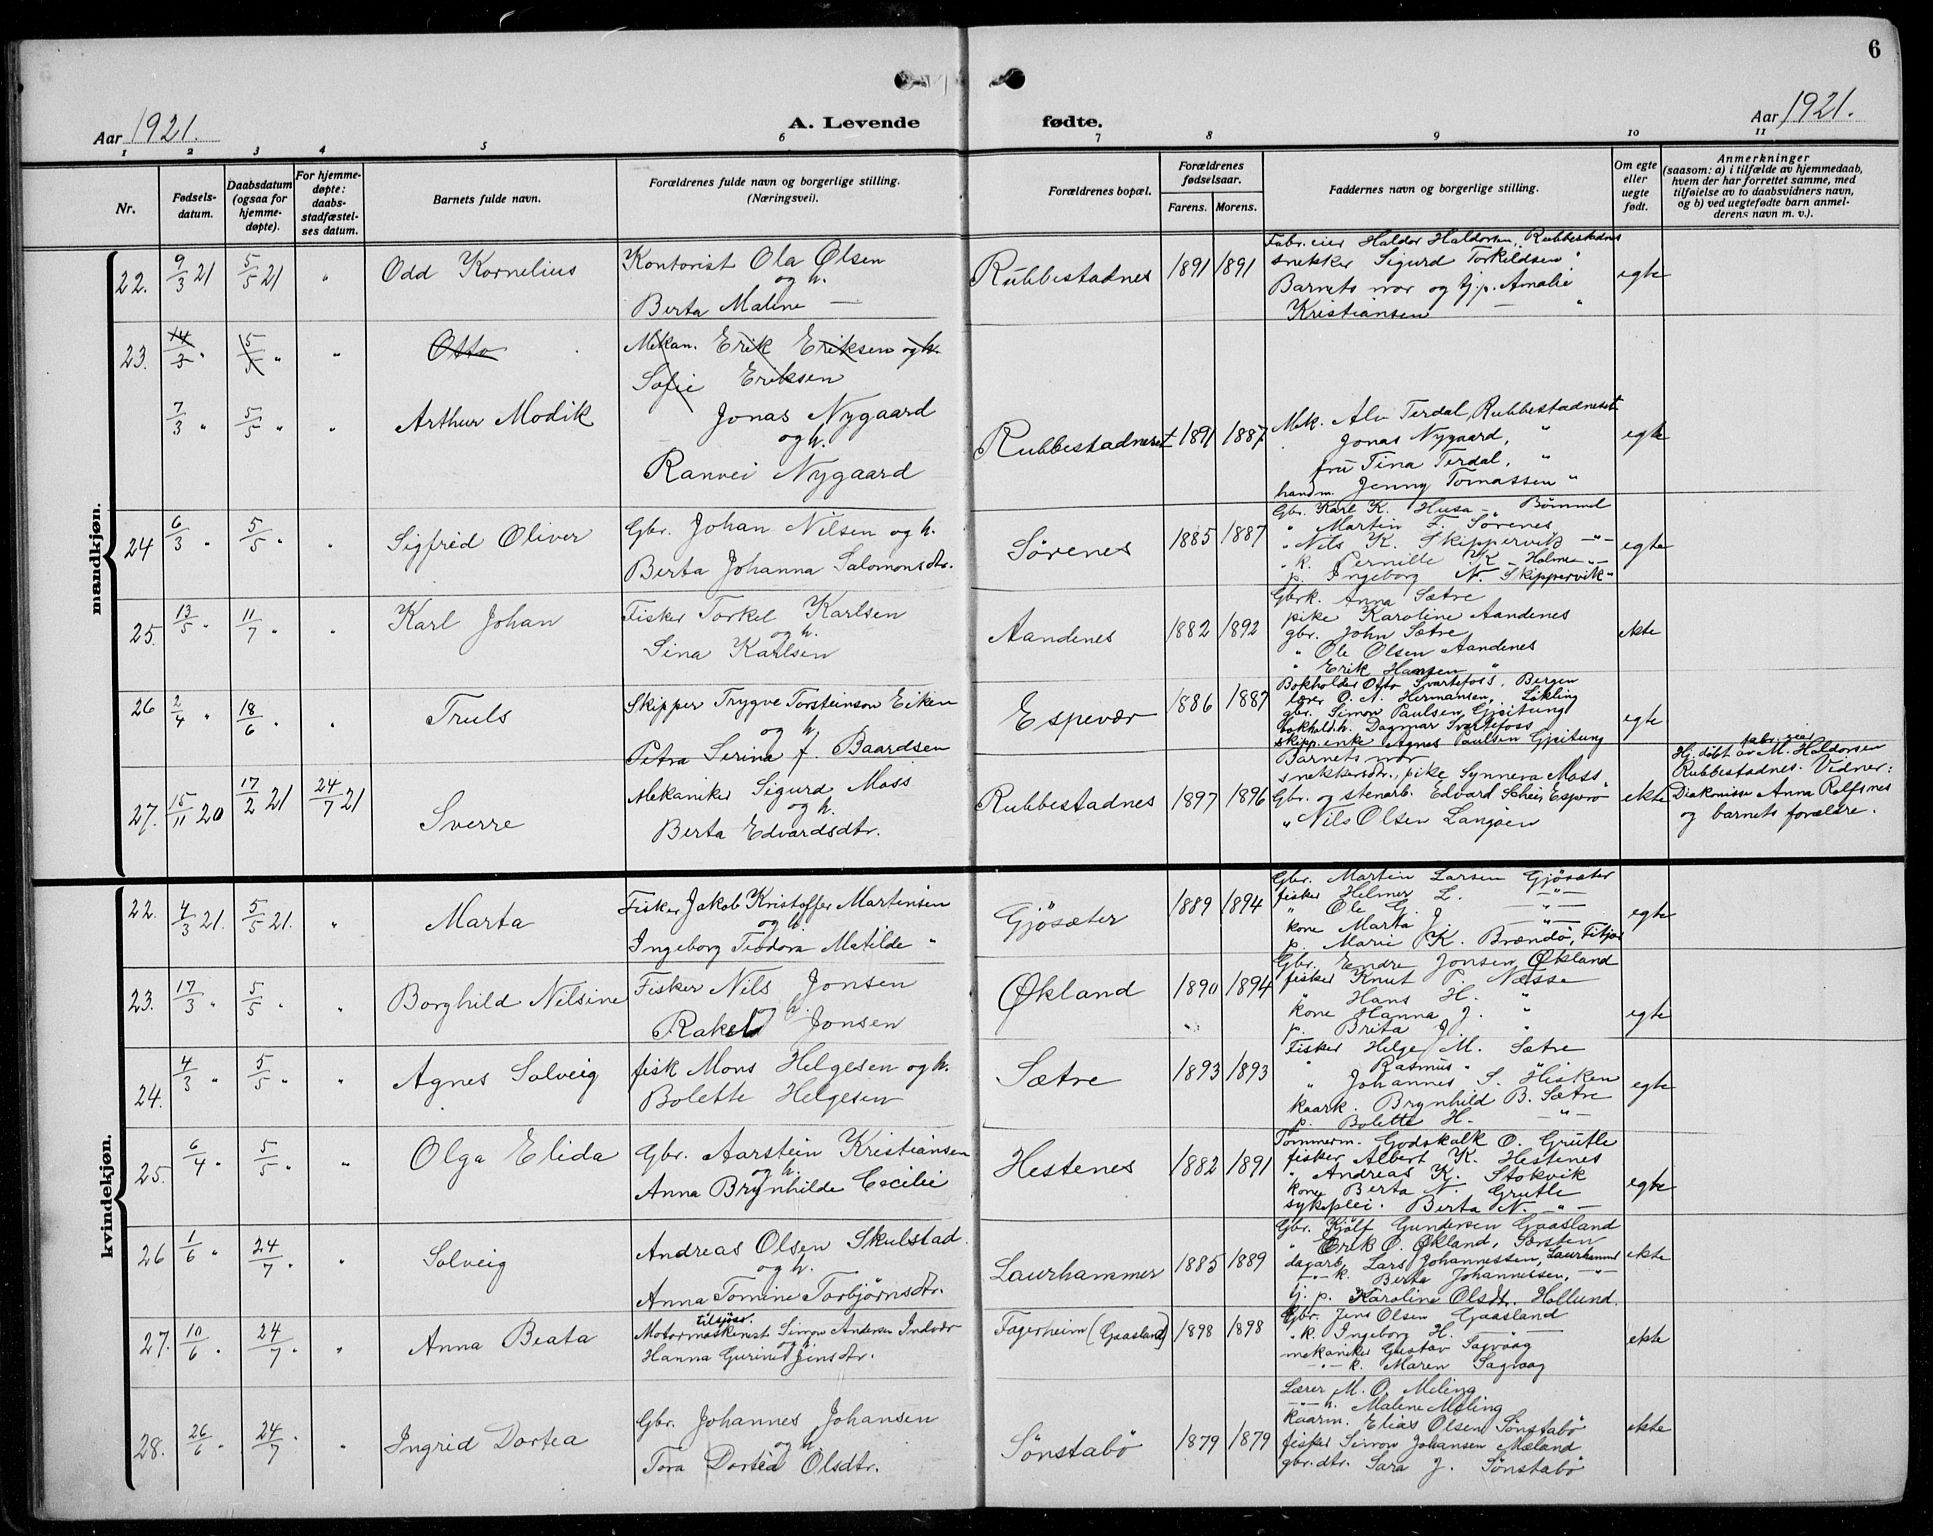 6
Aar 1921.
A. Levende
fødte.
Aar 1921.
1 2 3 4 5 6 7 8 9 10 11
Nr.
Fødsels-
datum.
Daabsdatum
(ogsaa for
hjemme-
døpte).
For hjemme-
døpte:
daabs-
stadfæstel-
ses datum.
Barnets fulde navn.
Forældrenes fulde navn og borgerlige stilling.
(Næringsvei).
Forældrenes bopæl.
Forældrenes
fødselsaar.
Farens. Morens.
Faddernes navn og borgerlige stilling.
Om egte
eller
uegte
født.
Anmerkninger
(saasom: a) i tilfælde av hjemmedaab,
hvem der har forrettet samme, med
tilføielse av to daabsvidners navn,
og b) ved uegtefødte barn anmel-
derens navn m. v.).
mandkjøn.
22. 9/3 21 5/5 21 " Odd Kornelius
Kontorist Ola Olsen
og h.
Berta Malene —
Rubbestadnes 1891 1891
Fabr. eier Haldor Haldorsen, Rubbestadnes
snekker Sigurd Torkildsen "
Barnets mor og tj.p. Amalie
Kristiansen — "
egte
23. 14/3 " 5/5 " " Otto
Mekan. Erik Eriksen og h.
Sofie Eriksen
7/3 " 5/5 " " Arthur Modik
Jonas Nygaard
og h.
Ranvei Nygaard
Rubbestadneset 1891 1887
Mek. Alv Terdal, Rubbestadneset
Jonas Nygaard, "
fru Tina Terdal, "
handm. Jenny Tomassen "
egte
24 6/3 " 5/5 " " Sigfred Oliver
Gbr. Johan Nilsen og h.
Berta Johanna Salomonsdtr.
Sørenes 1885 1887
Gbr. Karl K. Husa — Bømmel
" Martin F. Sørenes
" Nils K. Skippervik —"—
" k. Pernille K. Holme —"—
p. Ingeborg N. Skippervik "
egte
25. 13/5 " 11/7 " " Karl Johan
Fisker Torkel Karlsen
og h.
Sina Karlsen
Aandenes 1882 1892
Gbrk. Anna Sætre
pike Karoline Aandenes
gbr. John Sætre
" Ole Olsen Aandenes
" Erik Hansen "
ekte
26 2/4 " 18/6 " " Truls
Skipper Trygve Torsteinson Eiken
og h.
Petra Serina f. Baardsen
Espevær 1886 1887
Bokholder Otto Svartefoss, Bergen
lærer O. A. Hermansen, Løkling
gbr. Simon Paulsen Gjeitung
bokhold.h. Dagmar Svartefoss
skipp.enke Agnes Paulsen Gjeitung
egte
27. 15/11 20 17/2 21 24/7 21 Sverre
Mekaniker Sigurd Moss
og h.
Berta Edvardsdtr.
Rubbestadnes 1897 1896
Barnets mor
snekkersdtr., pike Synneva Moss
Gbr. og stenarb. Edvard Schei, Esprø
" Nils Olsen Langøen
ekte
fabr. eier
Hj. døbt av M. Haldorsen
Rubbestadnes. Vidner:
Diakonisse Anna Rolfsnes
og barnets forældre.
kvindekjøn.
22. 4/3 21. 5/5 21. " Marta
Fisker Jakob Kristoffer Martinsen
og h.
Ingeborg Teodora Matilde "
Gjøsæter 1889 1894
Gbr. Martin Larsen Gjøsæter
fisker Helmer L. —"—
" Ole G. —"—
kone Marta J. —"—
p. Marie K. Brændø, Fitjar
egte
23. 17/3 " 5/5 " " Borghild Nilsine
Fisker Nils Jonsen
og h.
Rakel Jonsen
Økland 1890 1894
Gbr. Endre Jonsen Økland
fisker Knut P. Næsse
" Hans H. "
kone Hanna J. "
p. Brita J. "
egte
24. 4/3 " 5/5 " " Agnes Solveig
fisk Mons Helgesen og h.
Bolette Helgesen
Sætre 1893 1893
Fisker Helge M. Sætre
" Rasmus "
" Johannes S. Hisken
kaark. Brynhild B. Sætre
p. Bolette H. —"—
egte
25. 6/4 " 5/5 " " Olga Elida
Gbr. Aarstein Kristiansen
og h.
Anna Brynhilde Cecilie
Hestenes 1882 1891
Tømmerm. Godskalk O. Grutle
fisker Albert K. Hestenes
" Andreas K. Stokvik
kone Berta N. Grutle
sykeplei. Berta N. —"—
egte
26 1/6 " 24/7 " " Solveig
Andreas Olsen Skulstad.
og h.
Anna Tomine Torbjørnsdtr.
Laurhammer 1885 1889
Gbr. Kjølf Gundersen Gaasland
" Erik O. Økland, Sørsten
dagarb. Lars Johannessen, Laurhammer
—"— k. Berta Johannessen, —"—
tj. p. Karoline Olsdtr. Hollund.
ekte
27. 10/6 " 24/7 " " Anna Beata
tilsjøss.
Motormaskinist Simon Andersen Indvær
og h.
Hanna Gurine Jensdtr.
Fagerheim (Gaasland) 1898 1898
Gbr. Jens Olsen Gaasland
" k. Ingeborg H. —"—
mekaniker Gustav Sagvaag
—"— k. Maren Sagvaag
ekte
28. 26/6 " 24/7 " " Ingrid Dortea
Gbr. Johannes Johansen
og h.
Tora Dortea Olsdtr.
Sønstabø 1879 1879
Lærer M. O. Meling
—"— h. Malene Meling
kaarm. Elias Olsen Sønstabø
fisker Simon Johansen Mæland
gbr.dtr. Sara J. Sønstabø
ekte